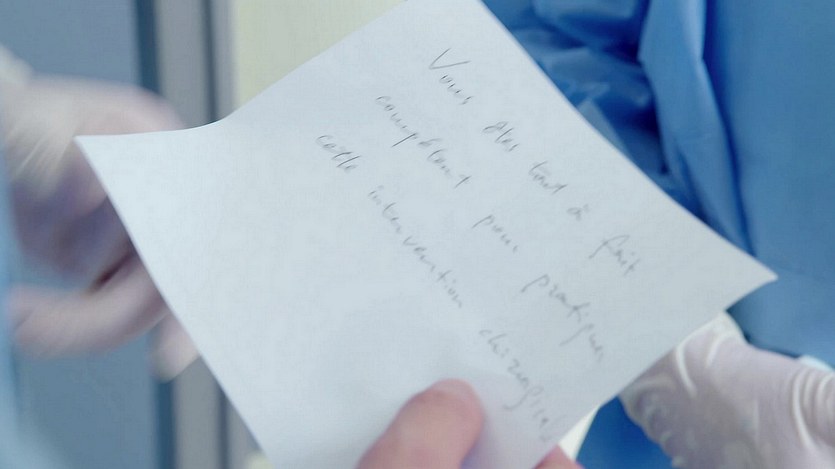 Vous êtes tout à fait
compétent pour pratiquer
cette intervention chirurgicale